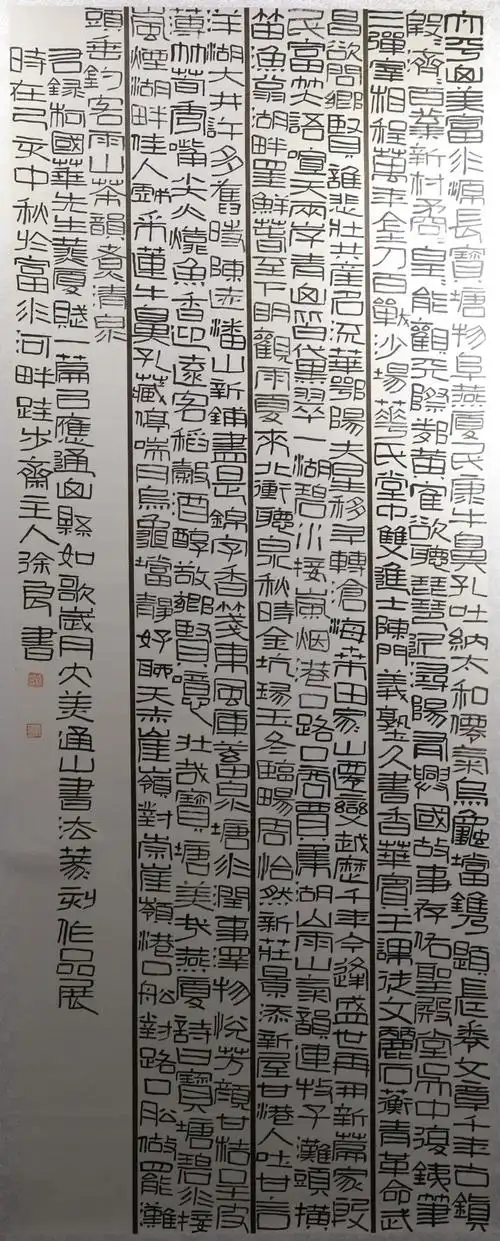 大冶山美富水源長寶塘物阜燕厦民康牛鼻孔吐納太和僊氣烏龜壋鐫題長泰文章千年古鎮
殷濟百業新村喬皇能觀飛際鄰黄寉欲聽琵琶記尋陽有興國故事存佑聖殿堂吳中復鉄筆
三彈宰相程萬年全力百戰沙場華氏堂中雙進士陳門義塾久書香華賓王課徒文麗石蘅青革命武
昌欲問鄉賢誰悲壯共產名流華鄂陽夫星移斗轉滄海桑田家山僊變越歷千年今逢盛世再冊新篇家殷
民富笑語喧天兩岸青山皆黛翠一湖碧水接嵐烟港口路口商賈薰湖山雨山氣韻連牧子灘頭橫
笛漁翁湖畔罩鮮暮至下明觀雨夏來北衝聽泉秋時金坑場玉冬臨暢周怡然新莊景添新屋甘港人吐甘言
洋湖大井許多舊時陳赤潘山新鋪盡是錦字香箋東風庫蓄泉塘水潤事澤物悅芳顏甘桔豆皮
薄竹荀香嘴尖火燒魚香迎遠客稻穀酒醇敬鄉賢噫壯哉寶塘美哉燕厦詩曰寶塘碧水接
嵐煙湖畔佳人戲采蓮牛鼻孔藏停喘日烏龜壋靜好眠天赤崖嶺對崇崖嶺港口船對路口船倣罷灘
頭垂釣客雨山茶韻煑清泉
右録柯國華先生燕厦賦一篇已應通山縣如歌歲月大美通山書法篆刻作品展
時在己亥中秋於富水河畔跬步齋主人徐良書